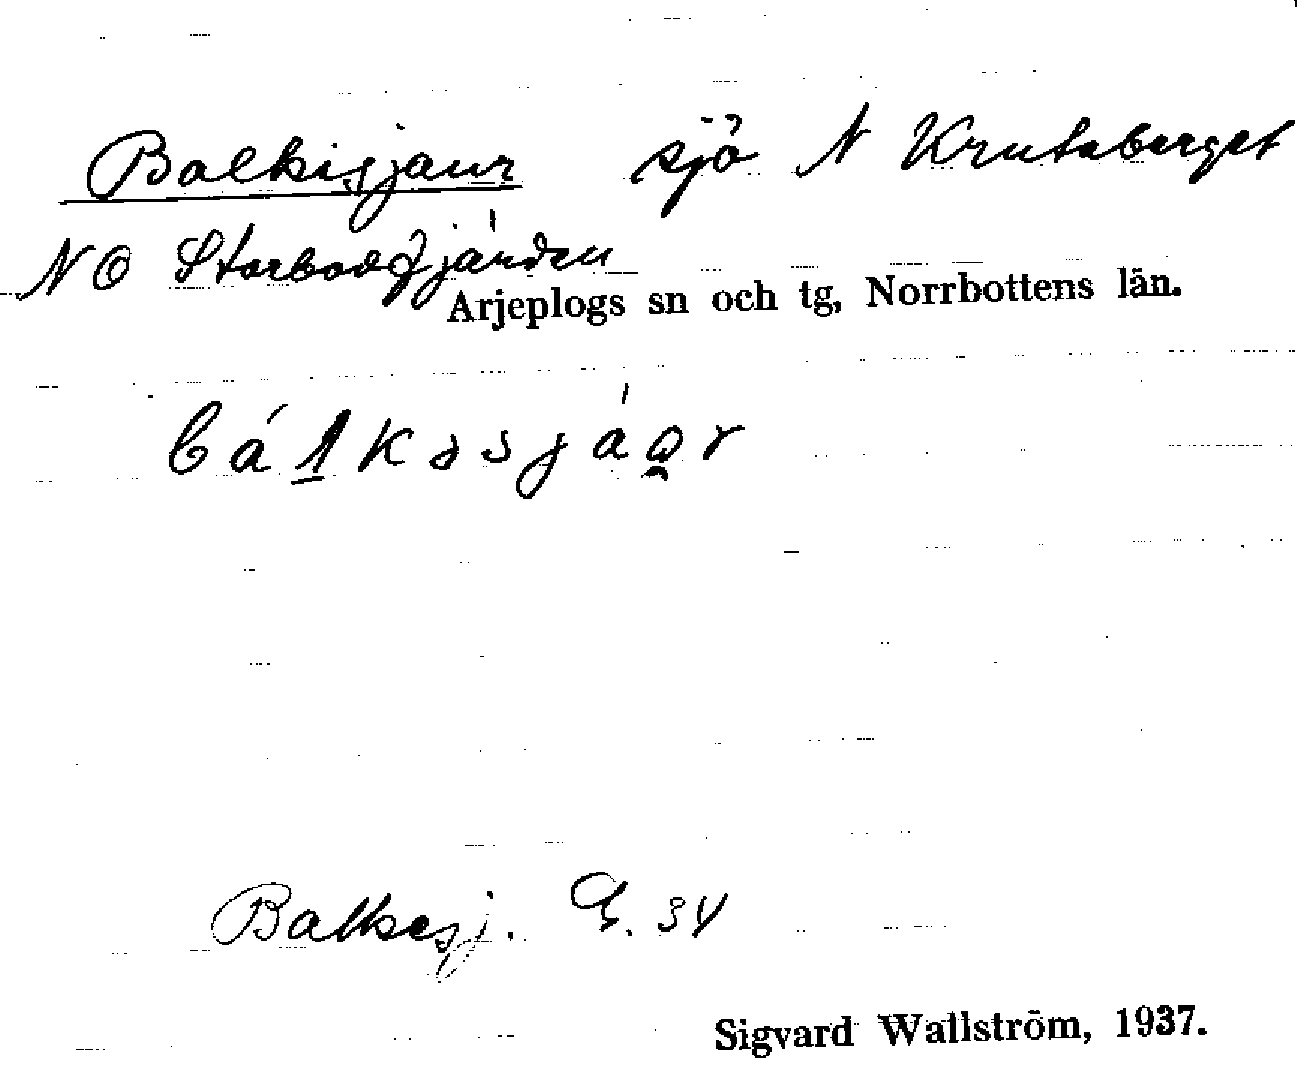 Balkisjaur sjö N Krutaberget
NO Storbodtjärden
Arjeplogs sn och tg, Norrbottens län.
bálkəsjáu̯r
Balkesj. G. 34
Sigvard Wallström, 1937.